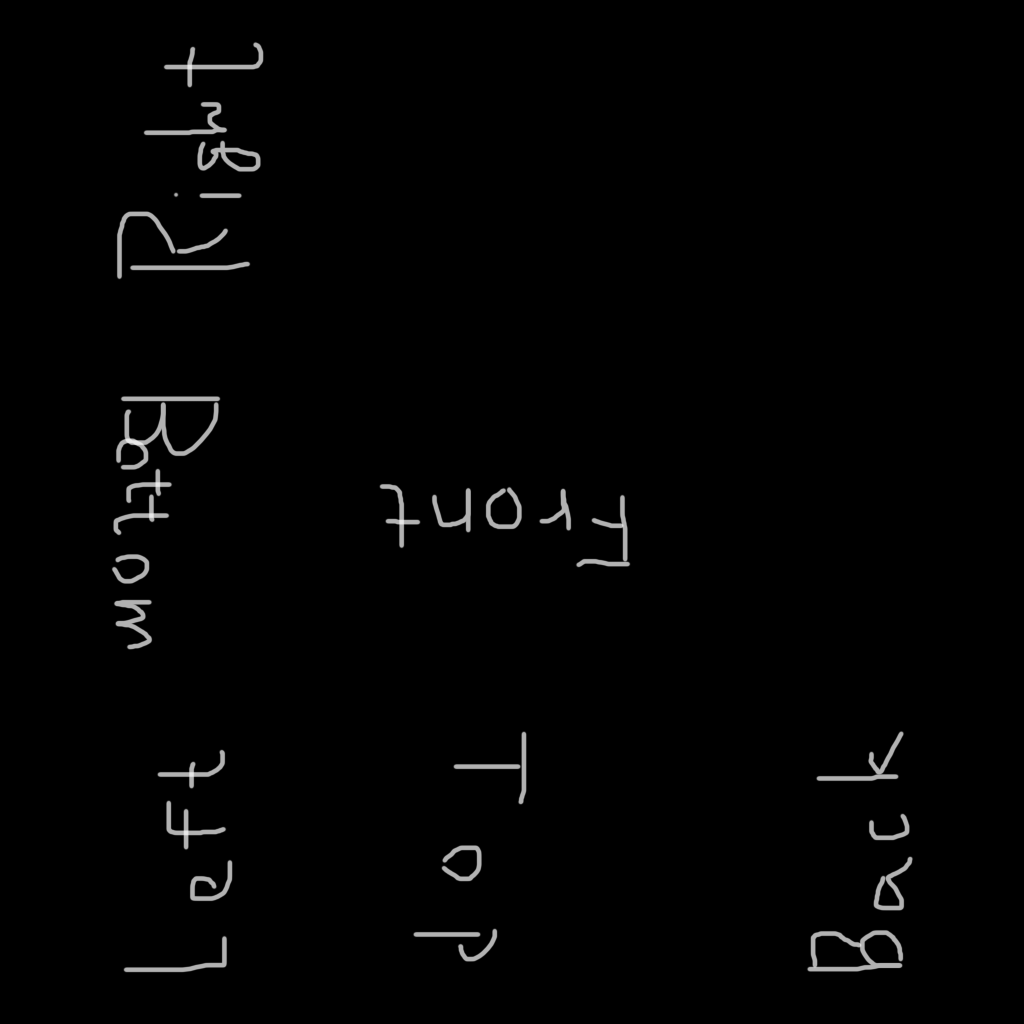 Right
Bottom
Front
Left
Top
Back